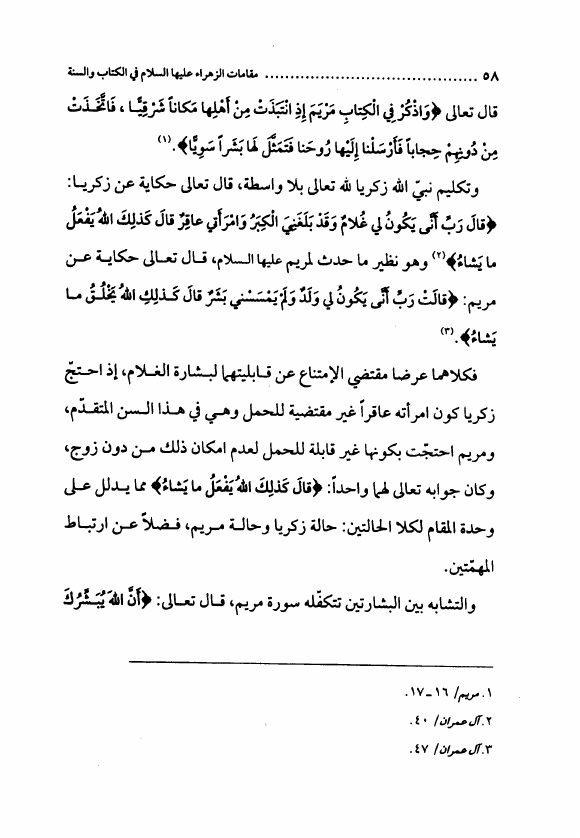 ٥٨ ........................................ مقامات الزهراء عليها السلام في الكتاب والسنة
قال تعالى ﴿وَاذْكُرْ فِي الْكِتابِ مَرْيَمَ إِذِ انْتَبَذَتْ مِنْ أَهْلِها مَكاناً شَرْقِيًّا ، فَاتَّخَذَتْ
مِنْ دُونِهِمْ حِجاباً فَأَرْسَلْنا إِلَيْها رُوحَنا فَتَمَثَّلَ لَها بَشَراً سَوِيًّا﴾.(١)
وتكليم نبيّ الله زكريا لله تعالى بلا واسطة، قال تعالى حكاية عن زكريا:
﴿قالَ رَبِّ أَنَّى يَكُونُ لِي غُلامٌ وَقَدْ بَلَغَنِيَ الْكِبَرُ وَامْرَأَتِي عاقِرٌ قالَ كَذلِكَ اللهُ يَفْعَلُ
ما يَشاءُ﴾(٢) وهو نظير ما حدث لمريم عليها السلام، قال تعالى حكاية عن
مريم: ﴿قالَتْ رَبِّ أَنَّى يَكُونُ لِي وَلَدٌ وَلَمْ يَمْسَسْنِي بَشَرٌ قالَ كَذلِكِ اللهُ يَخْلُقُ ما
يَشاءُ﴾.(٣)
فكلاهما عرضا مقتضي الإمتناع عن قابليتهما لبشارة الغلام، إذ احتجّ
زكريا كون امرأته عاقراً غير مقتضية للحمل وهي في هذا السن المتقدّم،
ومريم احتجّت بكونها غير قابلة للحمل لعدم امكان ذلك من دون زوج،
وكان جوابه تعالى لهما واحداً: ﴿قالَ كَذلِكَ اللهُ يَفْعَلُ ما يَشاءُ﴾ مما يدلل على
وحدة المقام لكلا الحالتين: حالة زكريا وحالة مريم، فضلاً عن ارتباط
المهمّتين.
والتشابه بين البشارتين تتكفّله سورة مريم، قال تعالى: ﴿أَنَّ اللهَ يُبَشِّرُكَ
١. مريم/ ١٦ـ١٧.
٢. آل عمران/ ٤٠.
٣. آل عمران/ ٤٧.